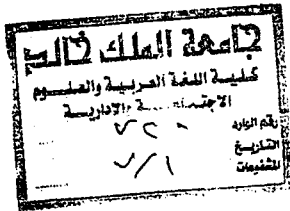 جامعة الملك خالد
كلية اللغة العربية والعلوم
الاجتماعية والإدارية
رقم الوارد ٧٢٠
التاريخ ٧/١
المشفوعات